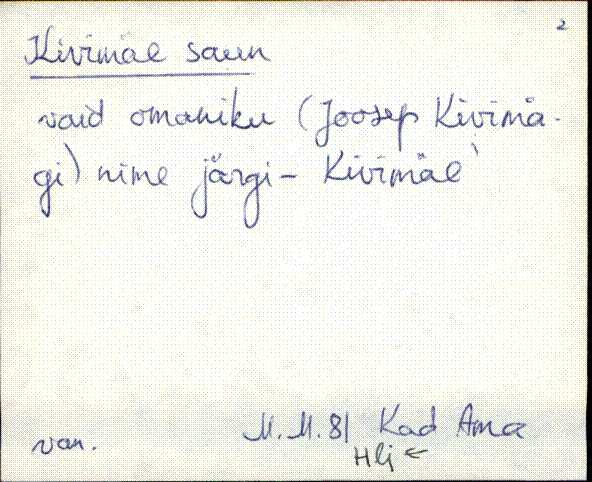 2
Kivimäe saun
vaid omaniku (Joosep Kivimä-
gi) nime järgi – Kivimäe
van. M.M. 81 Kad Ama
Hlj ←